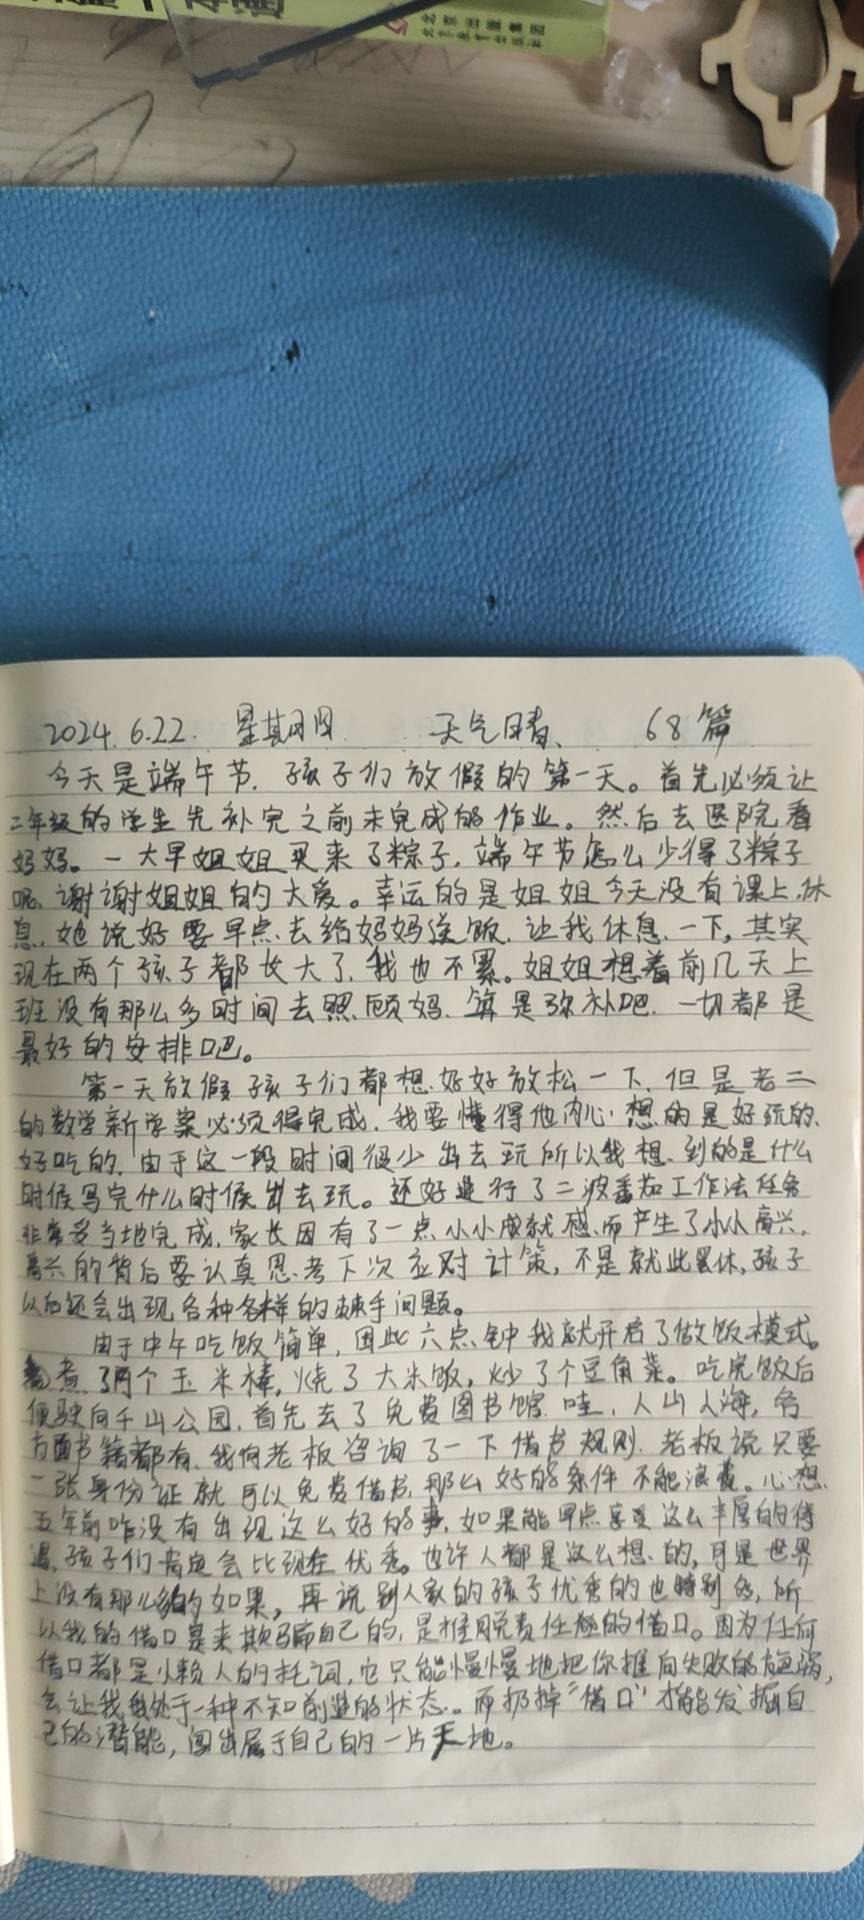 北京出版集团
北京教育出版社
2024.6.22. 星期四 天气晴、 68篇
今天是端午节.孩子们放假的第一天。首先必须让
二年级的学生先补完之前未完成的作业。然后去医院看
妈妈。一大早姐姐买来了粽子,端午节怎么少得了粽子
呢.谢谢姐姐的大爱。幸运的是姐姐今天没有课上.休
息.她说好要早点去给妈妈送饭.让我休息一下,其实
现在两个孩子都长大了.我也不累。姐姐想着前几天上
班没有那么多时间去照顾妈.算是弥补吧.一切都是
最好的安排吧。
第一天放假孩子们都想好好放松一下.但是老二
的数学新学案必须得完成.我要懂得他内心想的是好玩的、
好吃的.由于这一段时间很少出去玩所以我想到的是什么
时候写完什么时候出去玩。还好进行了二波番茄工作法任务
非常妥当地完成.家长因有了一点小小成就感、而产生了小小高兴,
高兴的背后要认真思考下次应对计策,不是就此罢休,孩子
以后还会出现各种各样的棘手问题。
由于中午吃饭简单,因此六点钟我就开启了做饭模式。
煮了两个玉米棒,烧了大米饭,炒了个豆角菜。吃完饭后
便驶向千山公园.首先去了免费图书馆.哇,人山人海,各
方面书籍都有、我向老板咨询了一下借书规则.老板说只要
一张身份证就可以免费借书.那么好的条件不能浪费。心想
五年前咋没有出现这么好的事,如果能早点享受这么丰厚的待
遇.孩子们肯定会比现在优秀。也许人都是这么想的,可是世界
上没有那么多的如果,再说别人家的孩子优秀的也特别多,所
以我的借口是来欺骗自己的,是推脱责任的借口。因为任何
借口都是懒人的托词,它只能慢慢地把你推向失败的旋涡,
会让我处于一种不知前进的状态。而扔掉“借口”才能发掘自
己的潜能,闯出属于自己的一片天地。